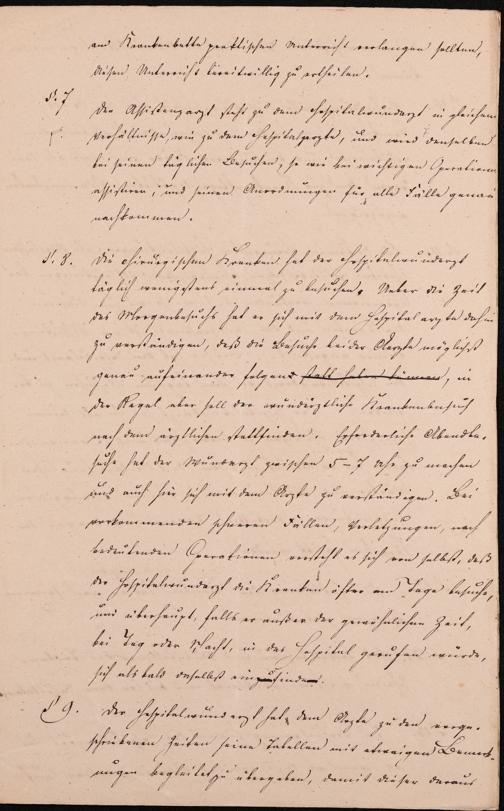 am Krankenbette praktischen Unterricht verlangen sollten,
diesen Unterricht bereitwillig zu ertheilen.
§. 7 Der Assistenzarzt steht zu dem Hospitalwundarzt in gleichem
Verhältnisse, wie zu dem Hospitalarzte, und wird denselben
bei seinen täglichen Besuchen, so wie bei wichtigen Operationen
assistiren, und seinen Anordnungen für alle Fälle genau
nachkommen.
§. 8. Die chirurgischen Kranken hat der Hospitalwundarzt
täglich wenigstens einmal zu besuchen. Ueber die Zeit
des Morgenbesuchs hat er sich mit dem Hospitalarzte dahin
zu verständigen, daß die Besuche beider Aerzte möglichst
genau aufeinander folgen statt haben können, in
der Regel aber soll der wundärztliche Krankenbesuch
nach dem ärztlichen stattfinden. Erforderliche Abendbe-
suche hat der Wundarzt zwischen 5–7 Uhr zu machen
und auch hier sich mit dem Arzte zu verständigen. Bei
vorkommenden schweren Fällen, Verletzungen, nach
bedeutenden Operationen versteht es sich von selbst, daß
der Hospitalwundarzt die Kranken öfter am Tage besuche,
und überhaupt, falls er außer der gewöhnlichen Zeit,
bei Tag oder Nacht, in das Hospital gerufen würde,
sich alsbald daselbst einzufinden.
§ 9. Der Hospitalwundarzt hat dem Arzte zu den vorge-
schriebenen Zeiten seine Tabellen mit etwaigen Bemerk-
ungen begleitet zu übergeben, damit dieser daraus